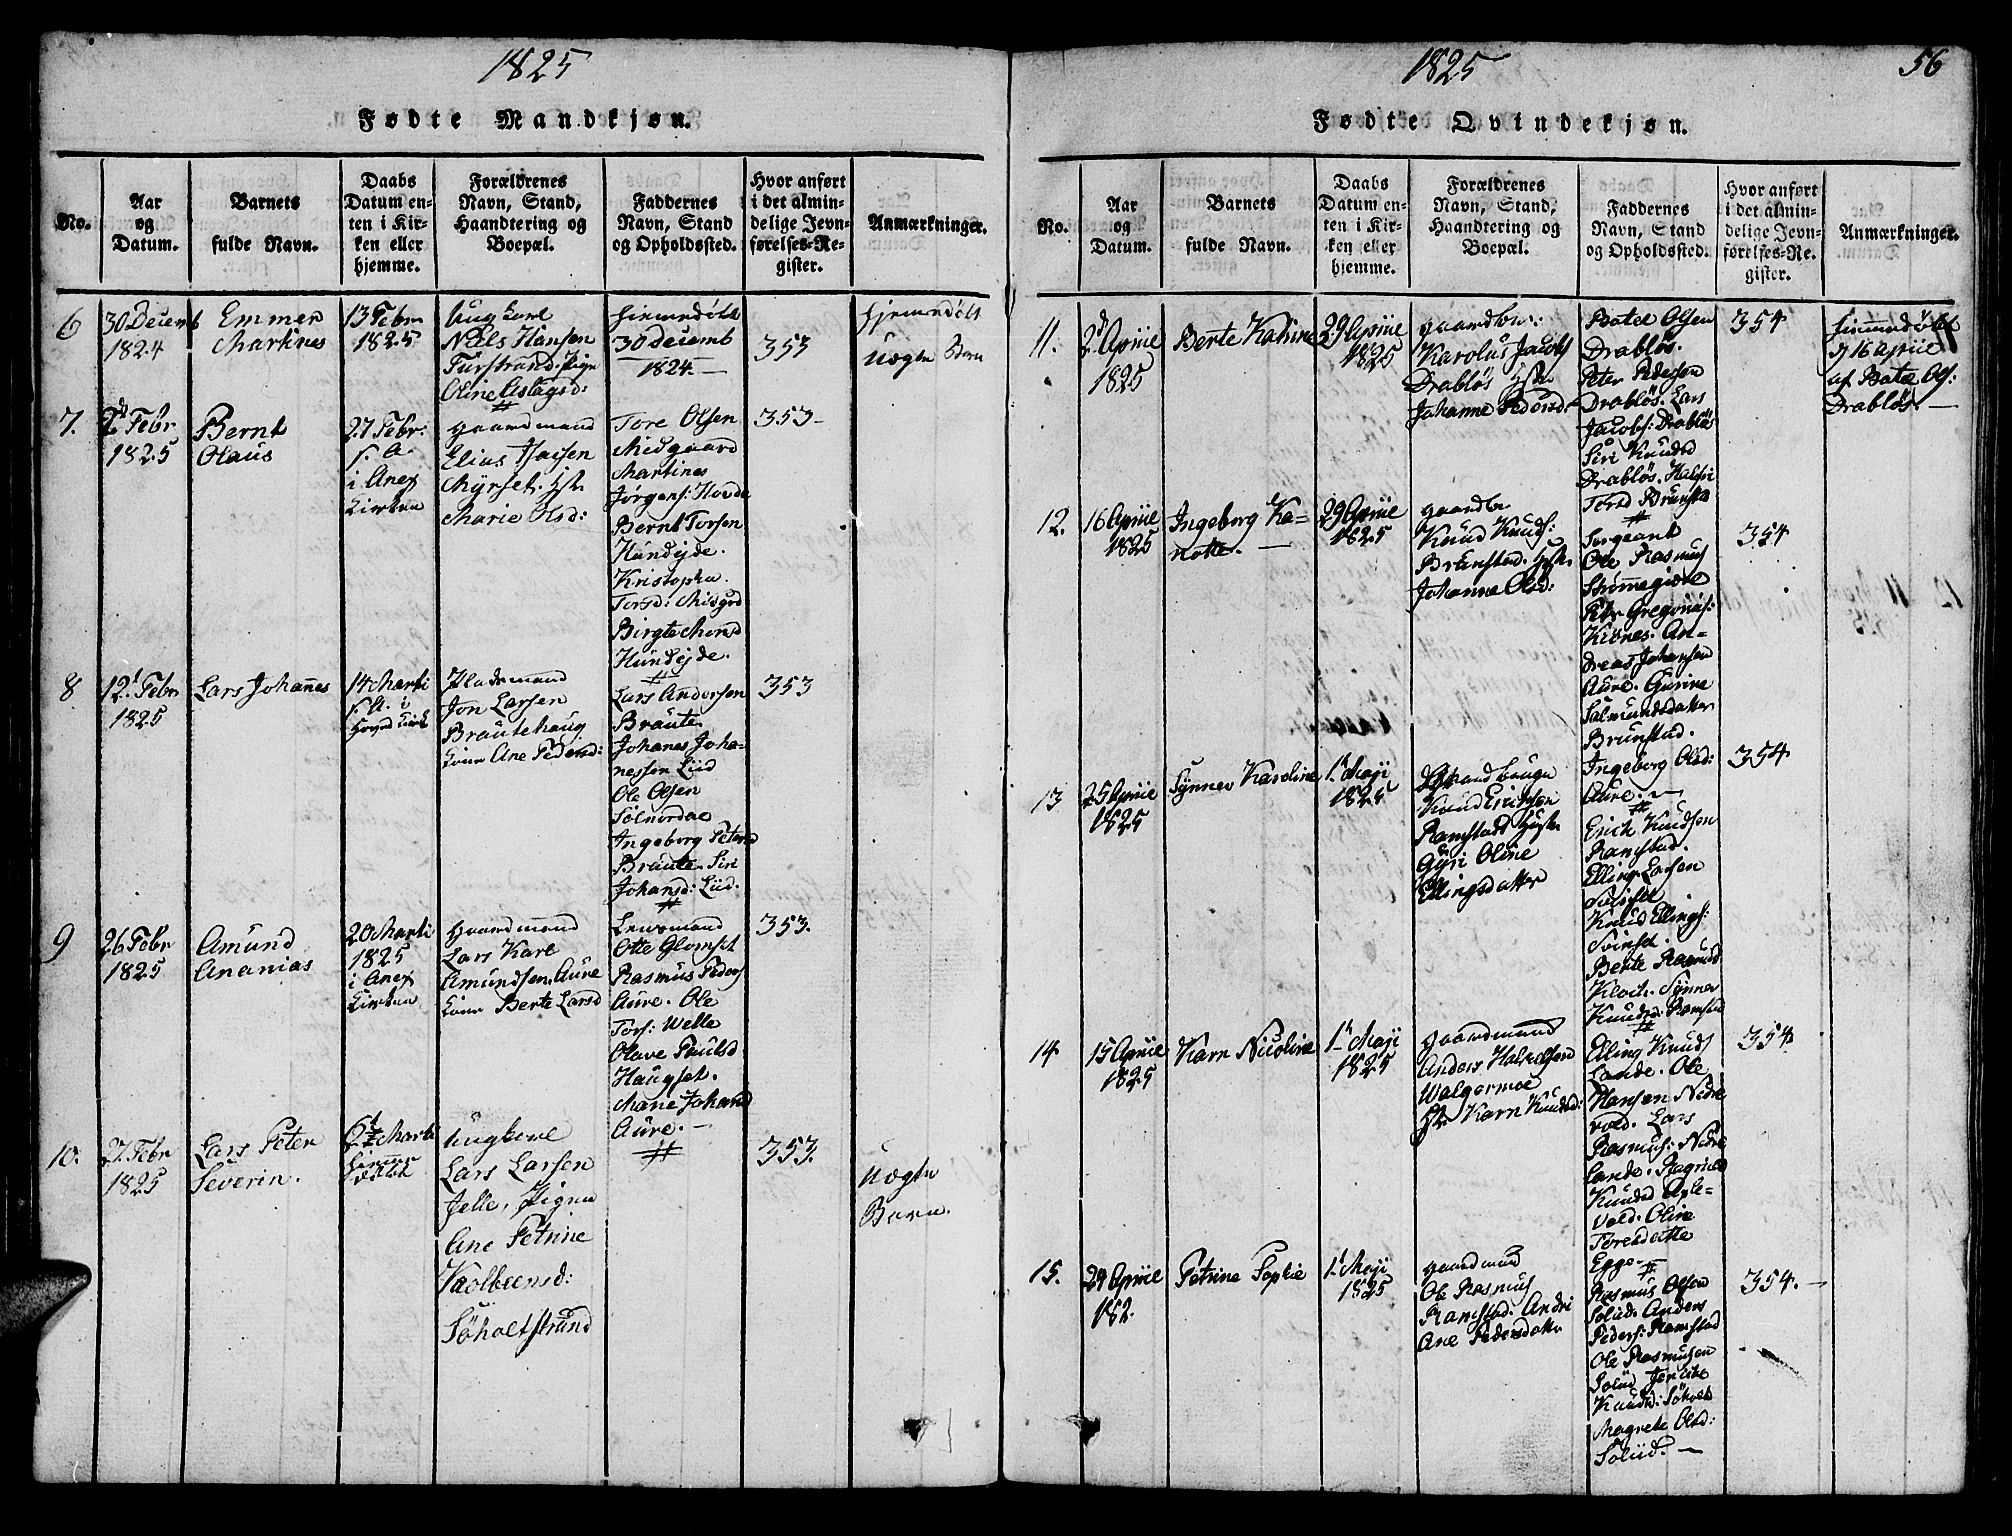 1825
Fødte Mandkjøn.
No.
Aar
og
Datum.
Barnets
fulde Navn.
Daabs
Datum en-
ten i Kir-
ken eller
hjemme.
Forældrenes
Navn, Stand,
Haandtering og
Boepæl.
Faddernes
Navn, Stand
og Opholdssted.
Hvor anført
i det almin-
delige Jevn-
førelses-Re-
gister.
Anmærkninger.
6
30 Decemb
1824
Emmer
Martines
13 Febr
1825
Ungkarl
Niels Hansen
Oline Aslagsd:
hiemmedøbt
30 Decemb
1824. —
353
Hjemmedøbt
Uægte Barn
7.
2d Febr
1825
Bernt
Olaus
27 Febr.
i Anex
Kirken
Gaardmand
Elias
Myrset. Hst.
Marie Olsd:
Tore Olsen
Midgaard
Martines
Jørgens: Hovde
Bernt Torsen
Hundejde.
Kristopha
Torsd: Midgrd
Birgte Monsd
Hundejde.
353
8
12t Febr
1825
Lars Johannes
14 Marti
Pladsmand
Jon Larsen
Brautehaug
Kone Ane Pedersd:
Lars Andersen
Braute
Johanes Joha-
nessen Liid
Ole Olsen
Sølnordal
Ingeborg Petersd
Braute. Siri
Johansd: Liid.
353
9
26 Febr
1825
Amund
Ananias
20 Marti
1825
i Anex
Kirken
Gaardmand
Lars Karl
Amundsen, Aure
Kone Berte Larsd
Lensmand
Otte Glomset
Rasmus Peders
Aure. Ole
Tors: Welle
Olave Paulsd
Haugset.
Marie Johand
Aure. —
353.
10.
27 Febr
1825
Lars Peter
Severin.
Marti
Ungkarl
Lars Larsen
Jelle, Pigen
Ane Petrine
Kaolbeensd:
Søholtstrand
353.
Uægte
Barn.
1825
56
Fødte Qvindekjøn.
No.
Aar
og
Datum.
Barnets
fulde Navn.
Daabs
Datum en-
ten i Kir-
ken eller
hjemme.
Forældrenes
Navn, Stand,
Haandtering og
Boepæl.
Faddernes
Navn, Stand
og Opholdssted.
Hvor anført
i det almin-
delige Jevn-
førelses-Re-
gister.
Anmærkninger.
11.
2d Apriil
1825
Berte Katrine
29 Apriil
1825
Gaardbr:
Karolus Jacobs
Drabløs Hst.
Johanne Pedersd.
Olsen
Drabløs.
Peter Pedersen
Drabløs. Lars
Jacobs: Drabløs
Siri Knudsd
Drabløs.
Torsd Brunsta
354
hiemmedøbt
d 16 Apriil
af Olss:
Drabløs. —
12.
16 Apriil
1825
Ingeborg Ka-
notte. —
29 Apriil
1825
Gaardbr
Knud Knuds:
Brunstad. Hst.
Johanne Olsd:
Sergeant
Ole Rasmus
Strømmegiære
Petr Gregorius:
Kiønes. An-
dreas Johansen
Aure. Gurine
Salmundsdatter
Brunstad.
Ingeborg Olsd:
Aure. —
354
13
25 Apriil
1825
Synnev Karoline
1t Maji
1825
Knud Erichsen
Ramstad Hustr
Gyri Oline
Ellingsdatter
Erich Knudsen
Ramstad.
Elling Larsen
Sviset
Knud Ellings:
Svinset.
Berte Rasmusd
Kloch. Synnev
Knudsd: Ramstad
354
14
15 Apriil
1825
Karn Nicoline
1t Maji
1825
Gaardmand
Anders Halvorsen
Walgermoe
Hst. Karn Knudsd:
Elling Knuds
Lande. Ole
Hansen Nidre
vold. Lars
Rasmus: Nidre
Lande.
Knudsd Apele-
vold. Oline
Toresdatte
Egge. —
354
15.
29 Apriil
182.
Petrine Sophie
1t Maji
1825
Gaardmand
Ole Rasmus
Ramstad. Andri
Ane Pedersdatte
Rasmus Olsen
Soliid. Anders
Peders: Ramstad
Ole Rasmusen
Soliid
Knudsd: Søholt
Magrete Olsd:
Soliid. —
354. —